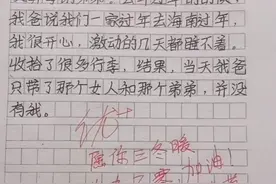 我爸说我们一家过年去海南过年,
我很开心,激动的几天都睡不着。
收拾了很多行李,结果,当天我爸
只带了那个女人和那个弟弟,并没
有我。
优+
愿你三冬暖
加油!